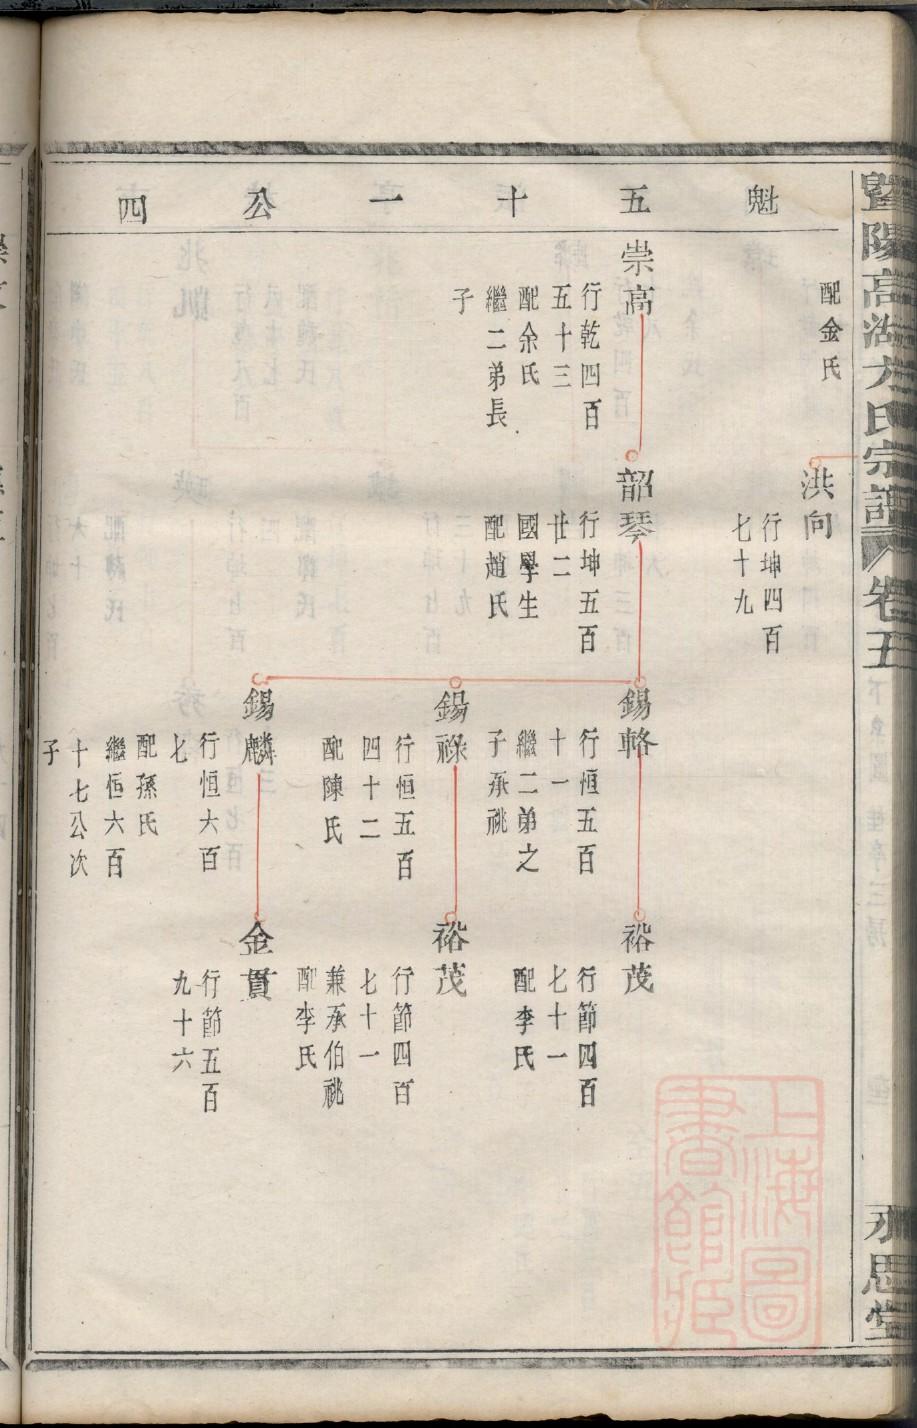 暨陽高湖方氏宗譜 卷五
永思堂
魁五十一公四
配金氏
洪向
行坤四百
七十九
崇高
行乾四百
五十三
配余氏
繼二弟長
子
韶琴
行坤五百
廿二
國學生
配趙氏
錫輅
行恒五百
十一
繼二弟之
子承祧
裕茂
行節四百
七十一
配李氏
錫祿
行恒五百
四十二
配陳氏
裕茂
行節四百
七十一
兼承伯祧
配李氏
錫麟
行恒六百
七
配孫氏
繼恒六百
十七公次
子
金貫
行節五百
九十六
上海圖
書館藏